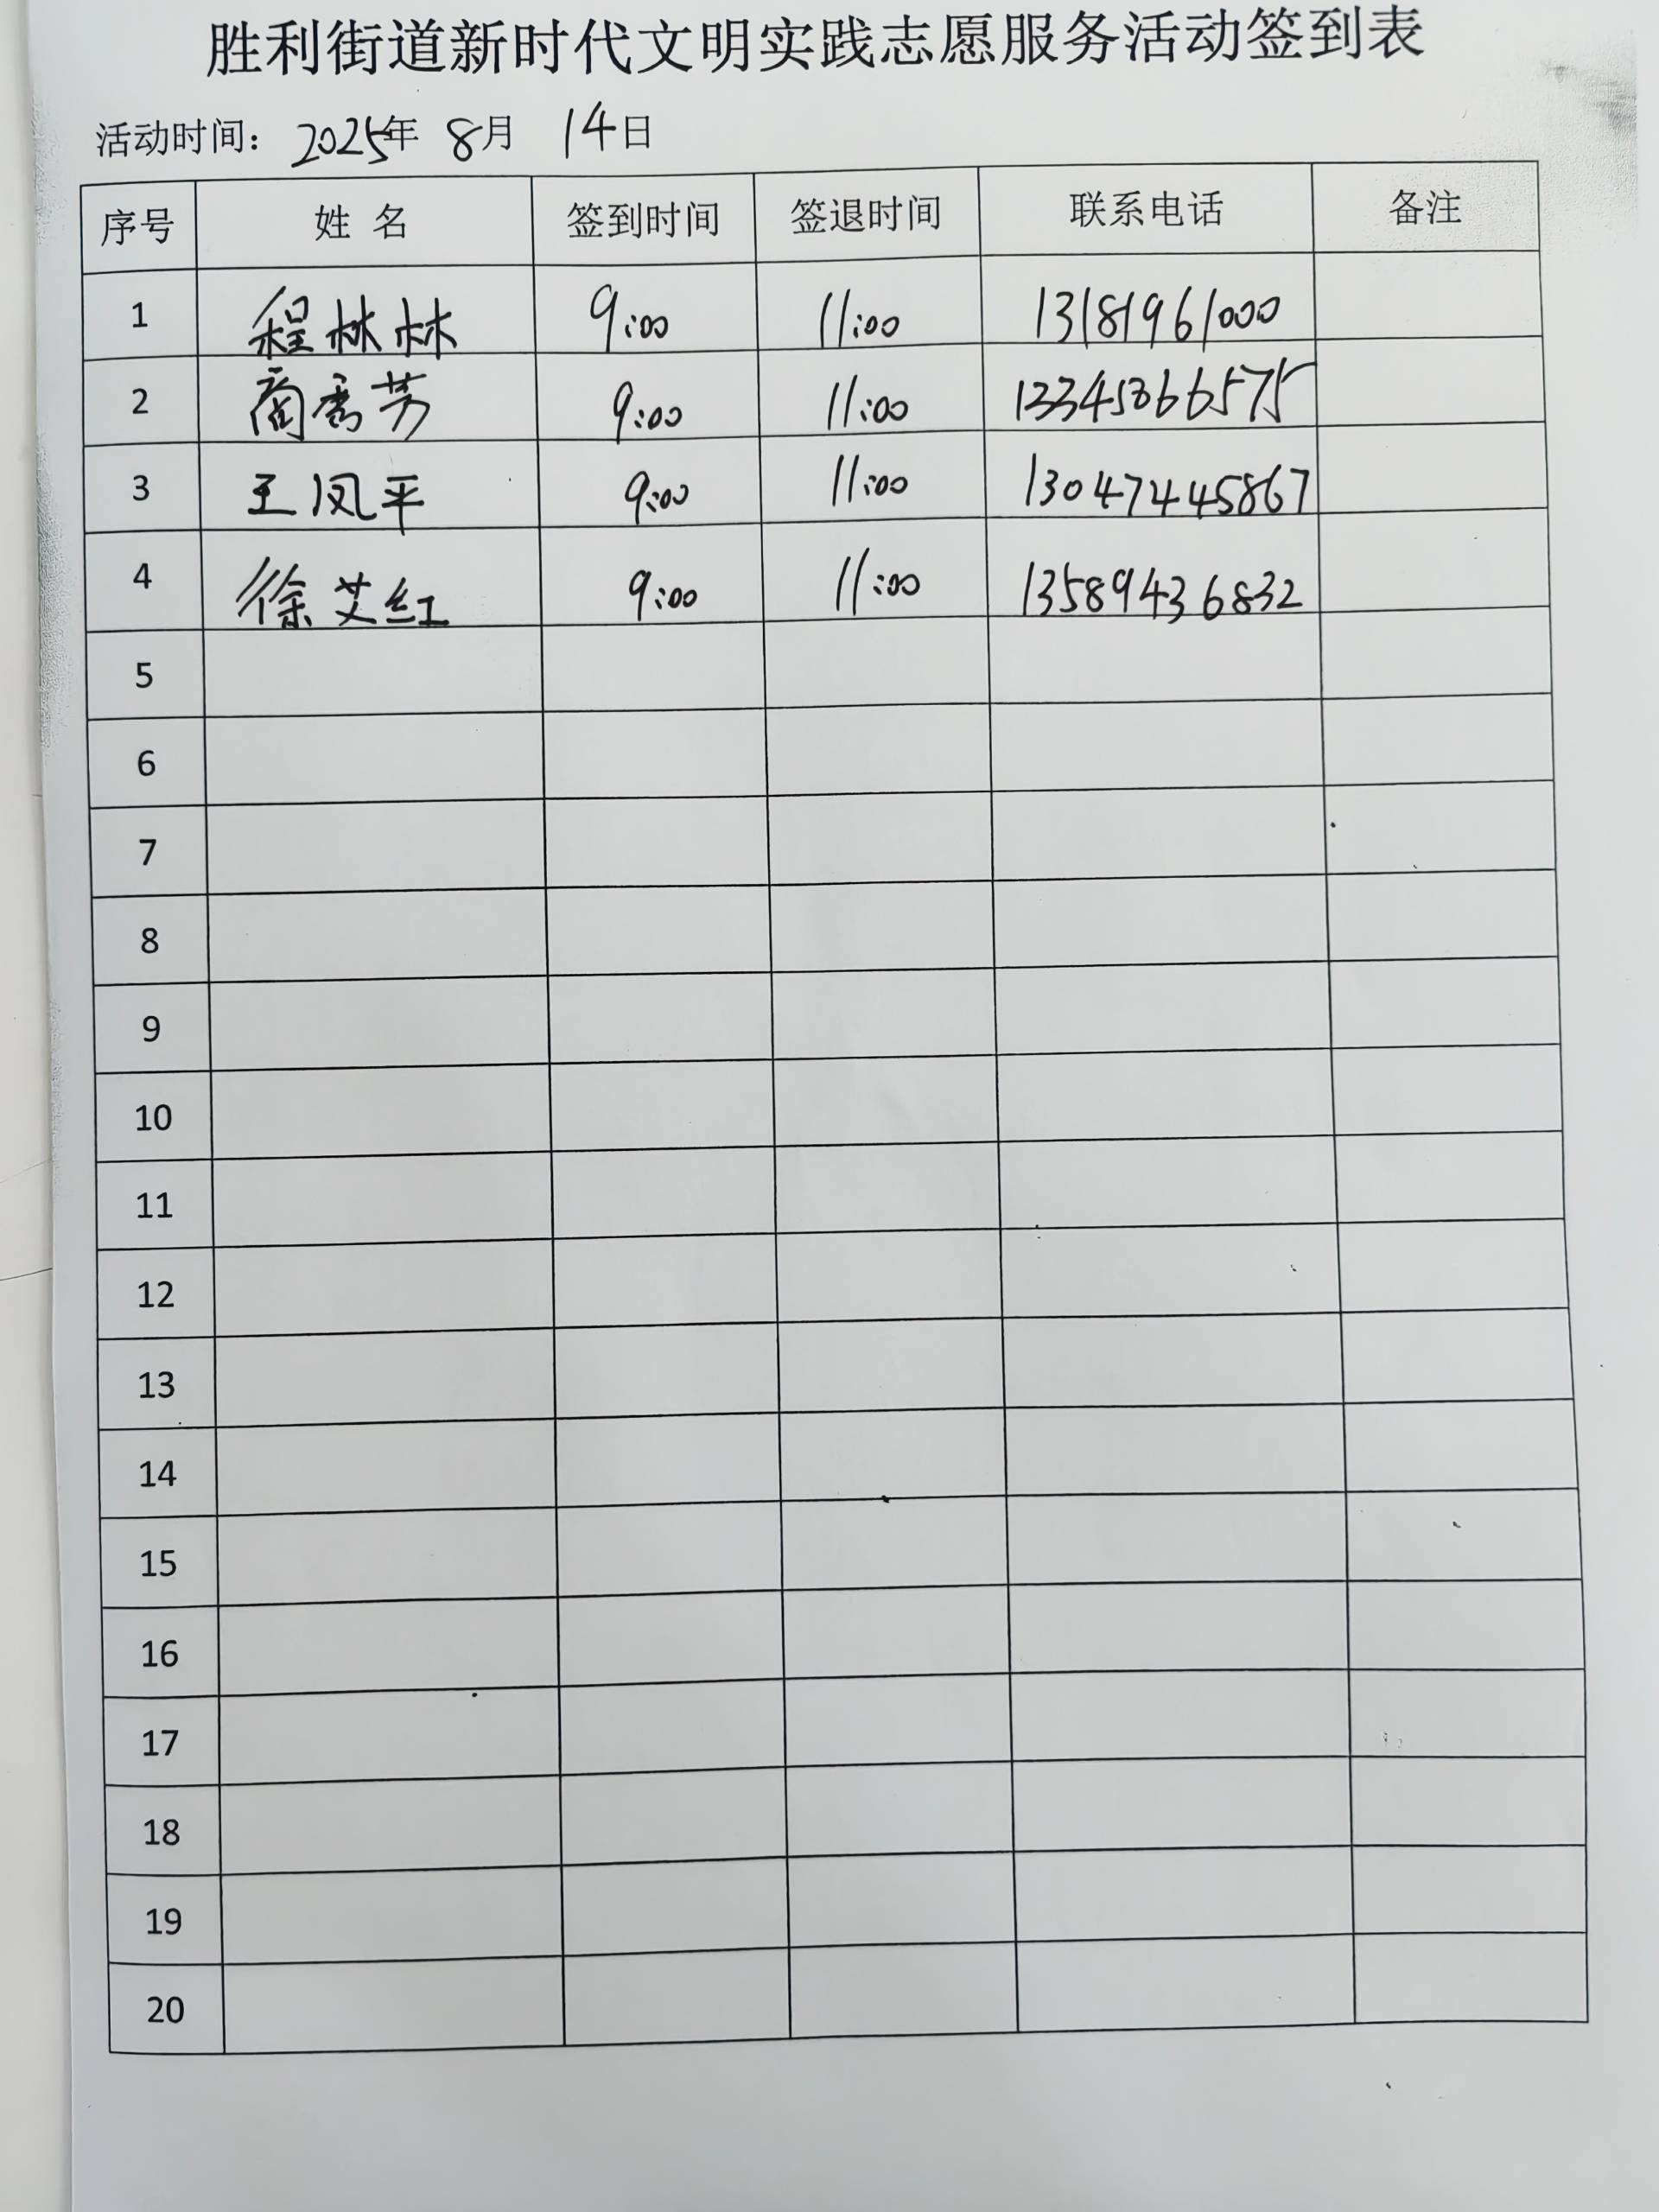 胜利街道新时代文明实践志愿服务活动签到表
活动时间： 2025年 8月 14日
序号 姓 名 签到时间 签退时间 联系电话 备注
1 程林林 9:00 11:00 13181961000
2 商秀芳 9:00 11:00 13345066575
3 王凤平 9:00 11:00 13047445867
4 徐艾红 9:00 11:00 13589436832
5
6
7
8
9
10
11
12
13
14
15
16
17
18
19
20